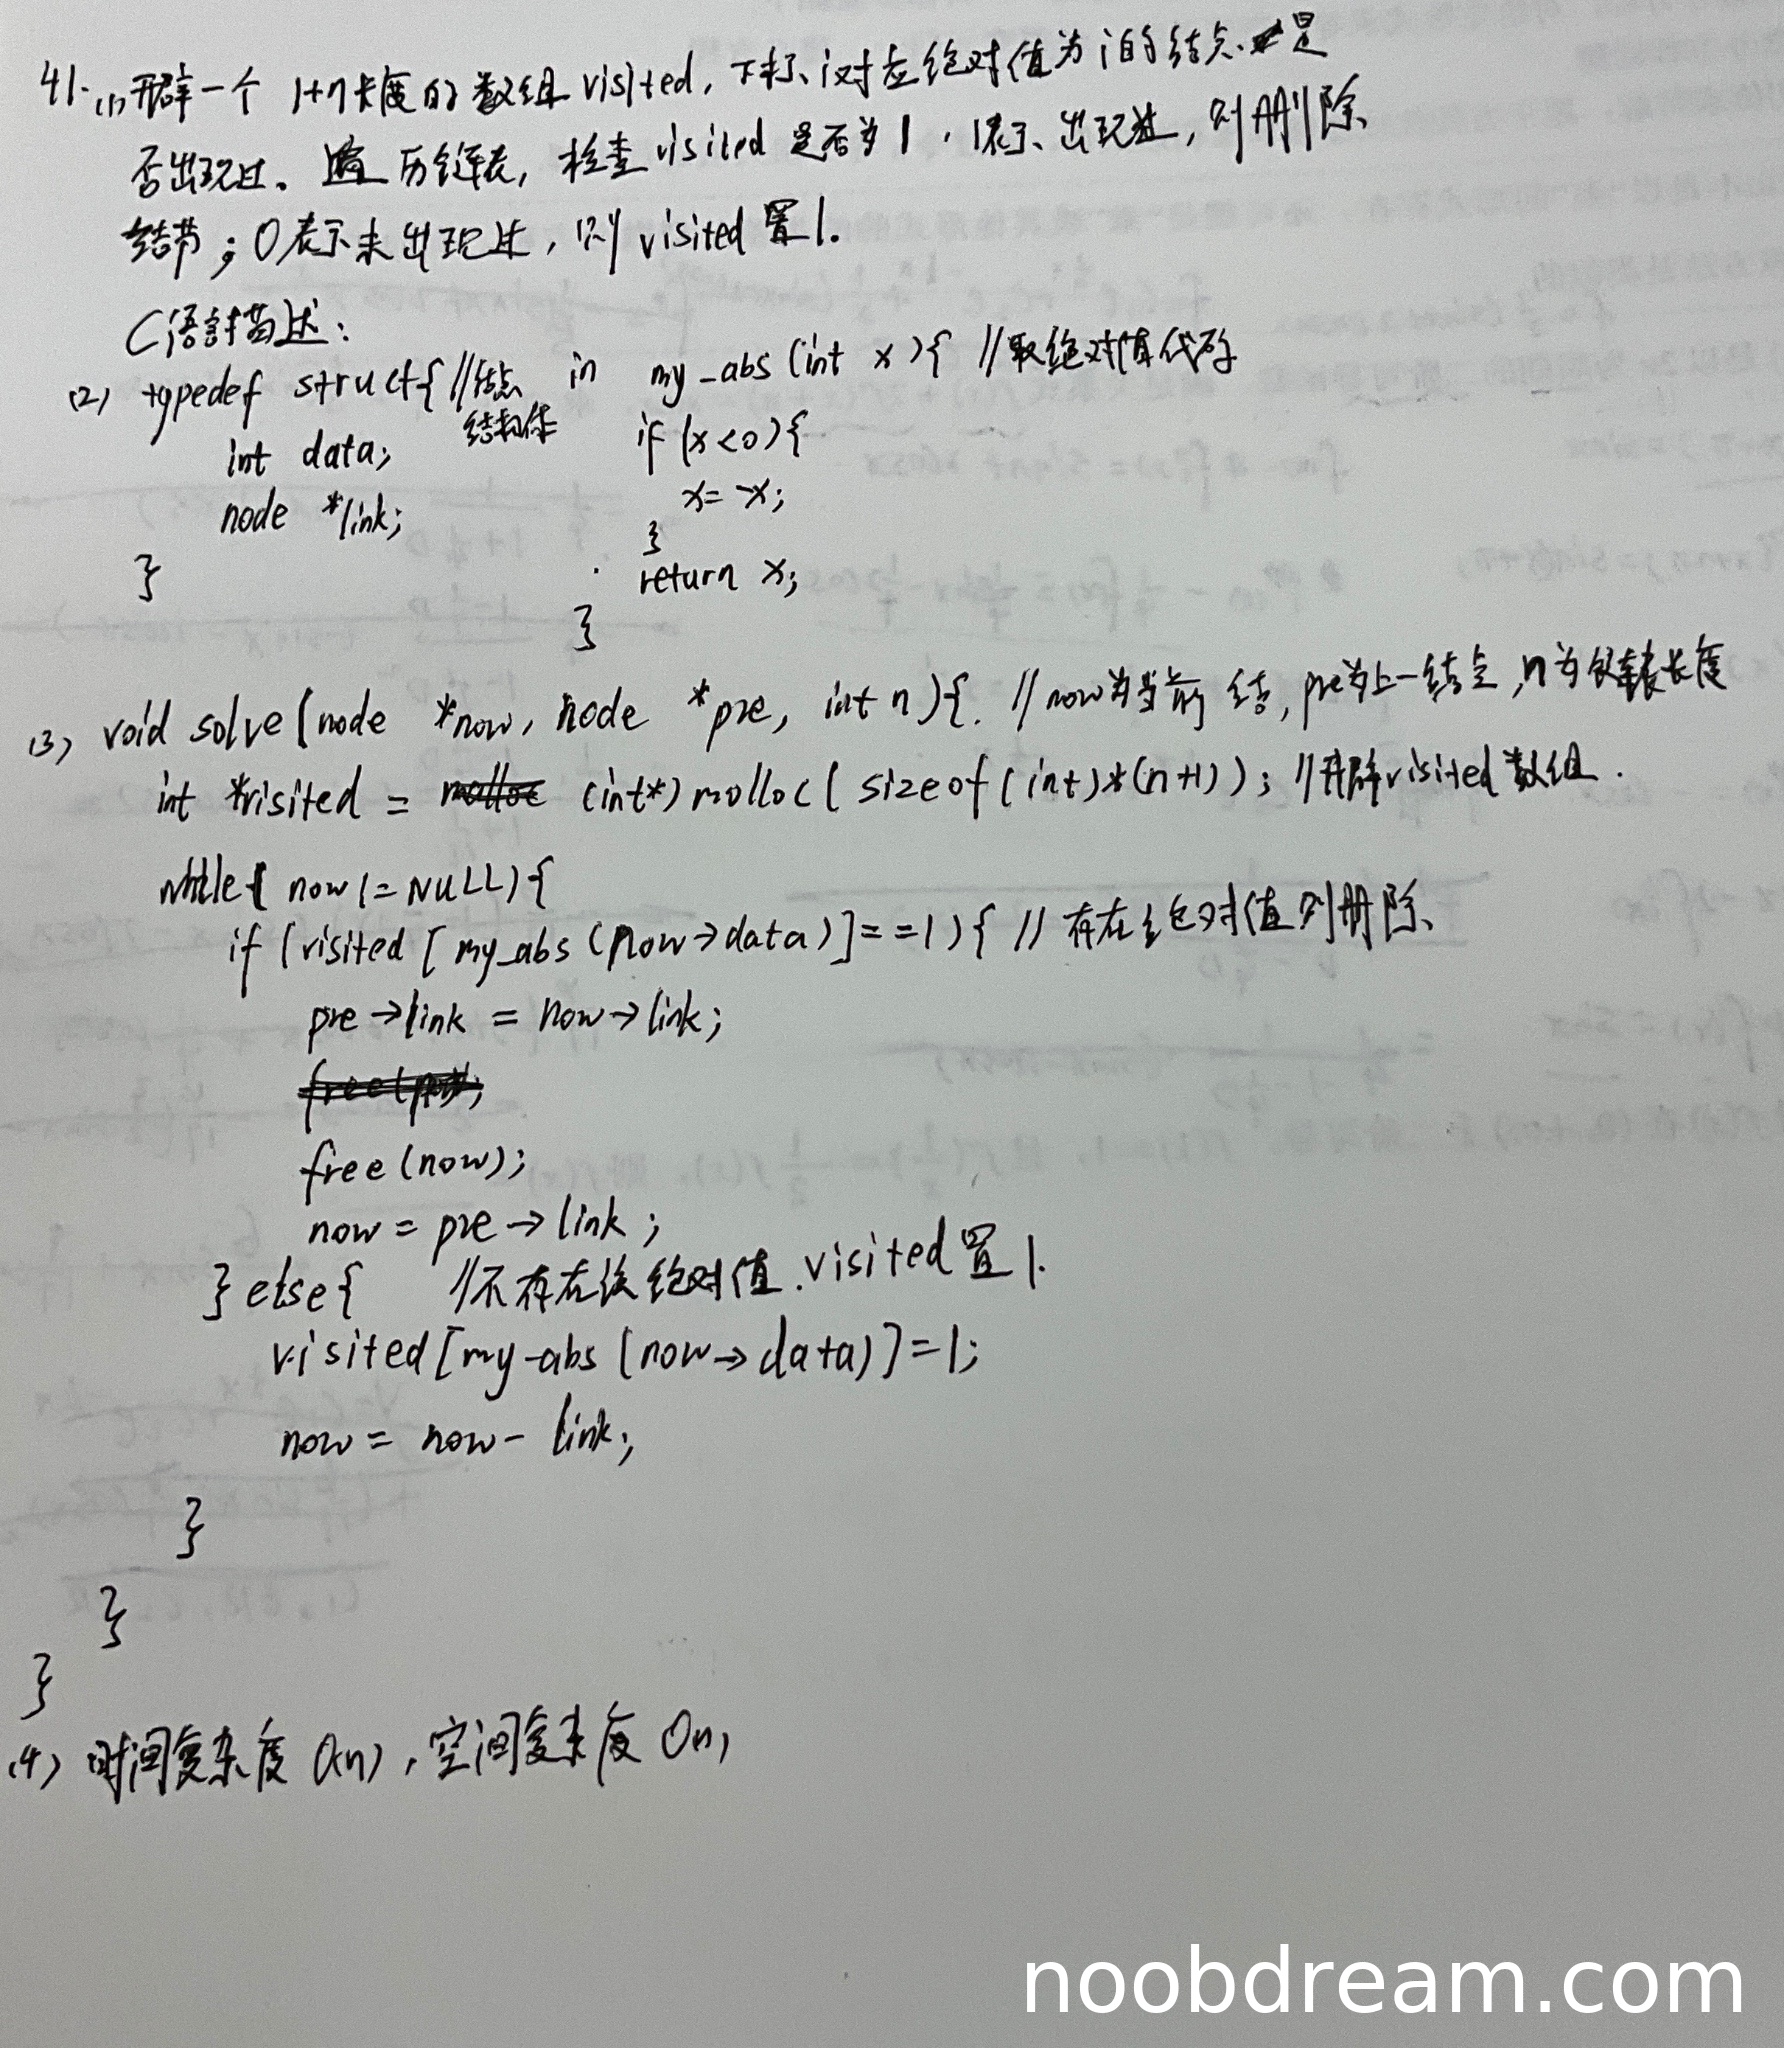 41.(1)开辟一个 1+n长度的数组visited,下标i对应绝对值为i的结点是
否出现过。遍历链表,检查visited是否为1,1表示出现过,则删除
结节;0表示未出现过,则visited置1.
C语言描述:
(2) typedef struct{ //结点结构体
int data;
node *link;
}
in my_abs(int x){ //取绝对值代码
if(x<0){
x=-x;
}
return x;
}
(3) void solve(node *now, node *pre, int n){ //now为当前结,pre为上一结点,n为链表长度
int *visited = (int*)molloc(sizeof(int)*(n+1)); //开辟visited数组.
while(now!=NULL){
if(visited[my_abs(now→data)]==1){ //存在绝对值则删除
pre→link = now→link;
free(now);
now = pre→link;
}else{ //不存在该绝对值.visited置1.
visited[my_abs(now→data)]=1;
now = now-link;
}
}
}
(4) 时间复杂度O(n),空间复杂度O(n)
noobdream.com